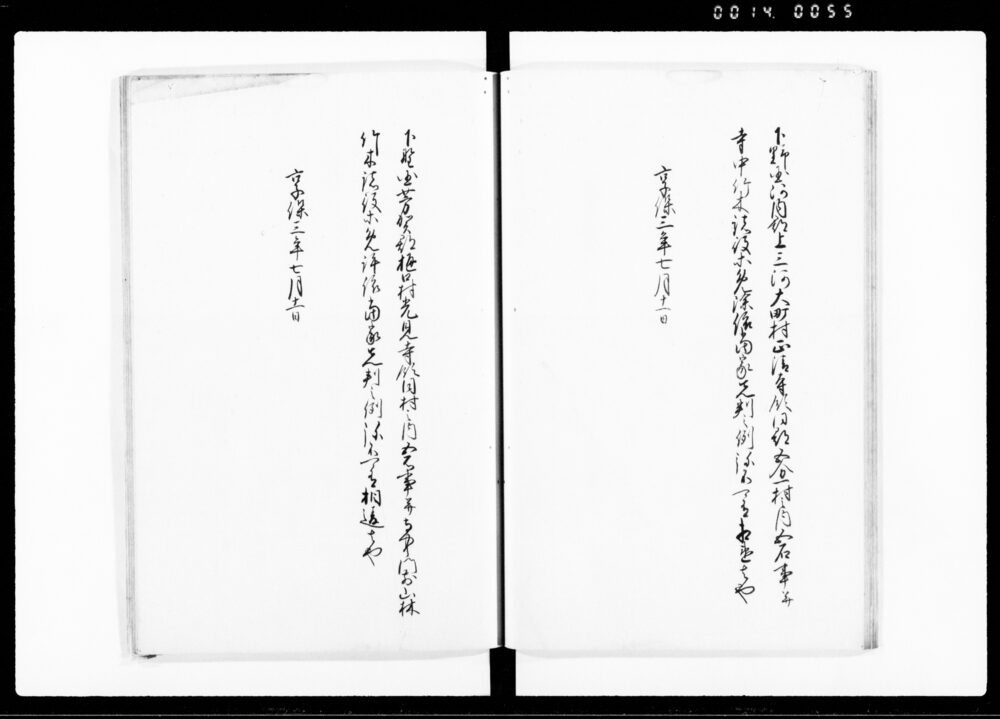 0014 0055
下野国河内郡上三河大町村正清寺領同郡谷村之内五石事并
寺中竹木諸役等免除依当家先判之例弥不可有相違者也
享保三年七月十一日
下野国芳賀郡樋口村光見寺領同村之内五石事并寺中門前山林
竹木諸役等免許依当家先判之例弥不可有相違者也
享保三年七月十一日